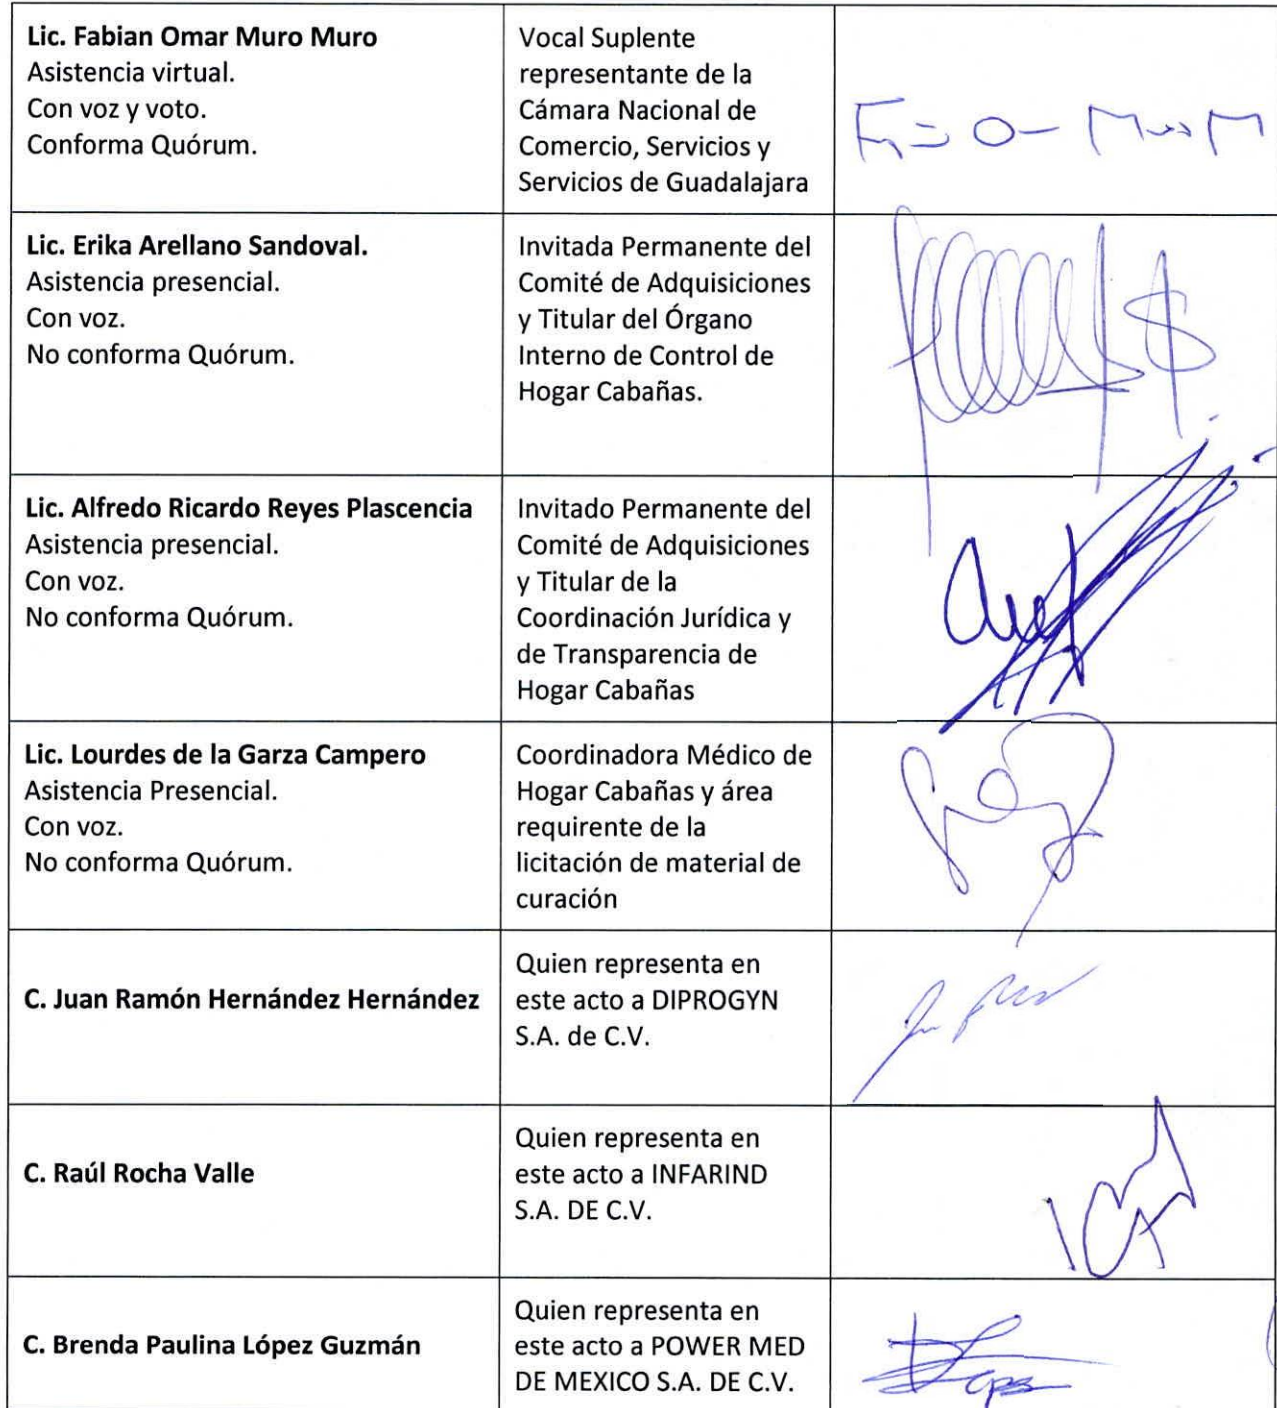 Lic. Fabian Omar Muro Muro
Asistencia virtual.
Con voz y voto.
Conforma Quórum.
Vocal Suplente
representante de la
Cámara Nacional de
Comercio, Servicios y
Servicios de Guadalajara
Lic. Erika Arellano Sandoval.
Asistencia presencial.
Con voz.
No conforma Quórum.
Invitada Permanente del
Comité de Adquisiciones
y Titular del Órgano
Interno de Control de
Hogar Cabañas.
Lic. Alfredo Ricardo Reyes Plascencia
Asistencia presencial.
Con voz.
No conforma Quórum.
Invitado Permanente del
Comité de Adquisiciones
y Titular de la
Coordinación Jurídica y
de Transparencia de
Hogar Cabañas
Lic. Lourdes de la Garza Campero
Asistencia Presencial.
Con voz.
No conforma Quórum.
Coordinadora Médico de
Hogar Cabañas y área
requirente de la
licitación de material de
curación
C. Juan Ramón Hernández Hernández
Quien representa en
este acto a DIPROGYN
S.A. de C.V.
C. Raúl Rocha Valle
Quien representa en
este acto a INFARIND
S.A. DE C.V.
C. Brenda Paulina López Guzmán
Quien representa en
este acto a POWER MED
DE MEXICO S.A. DE C.V.